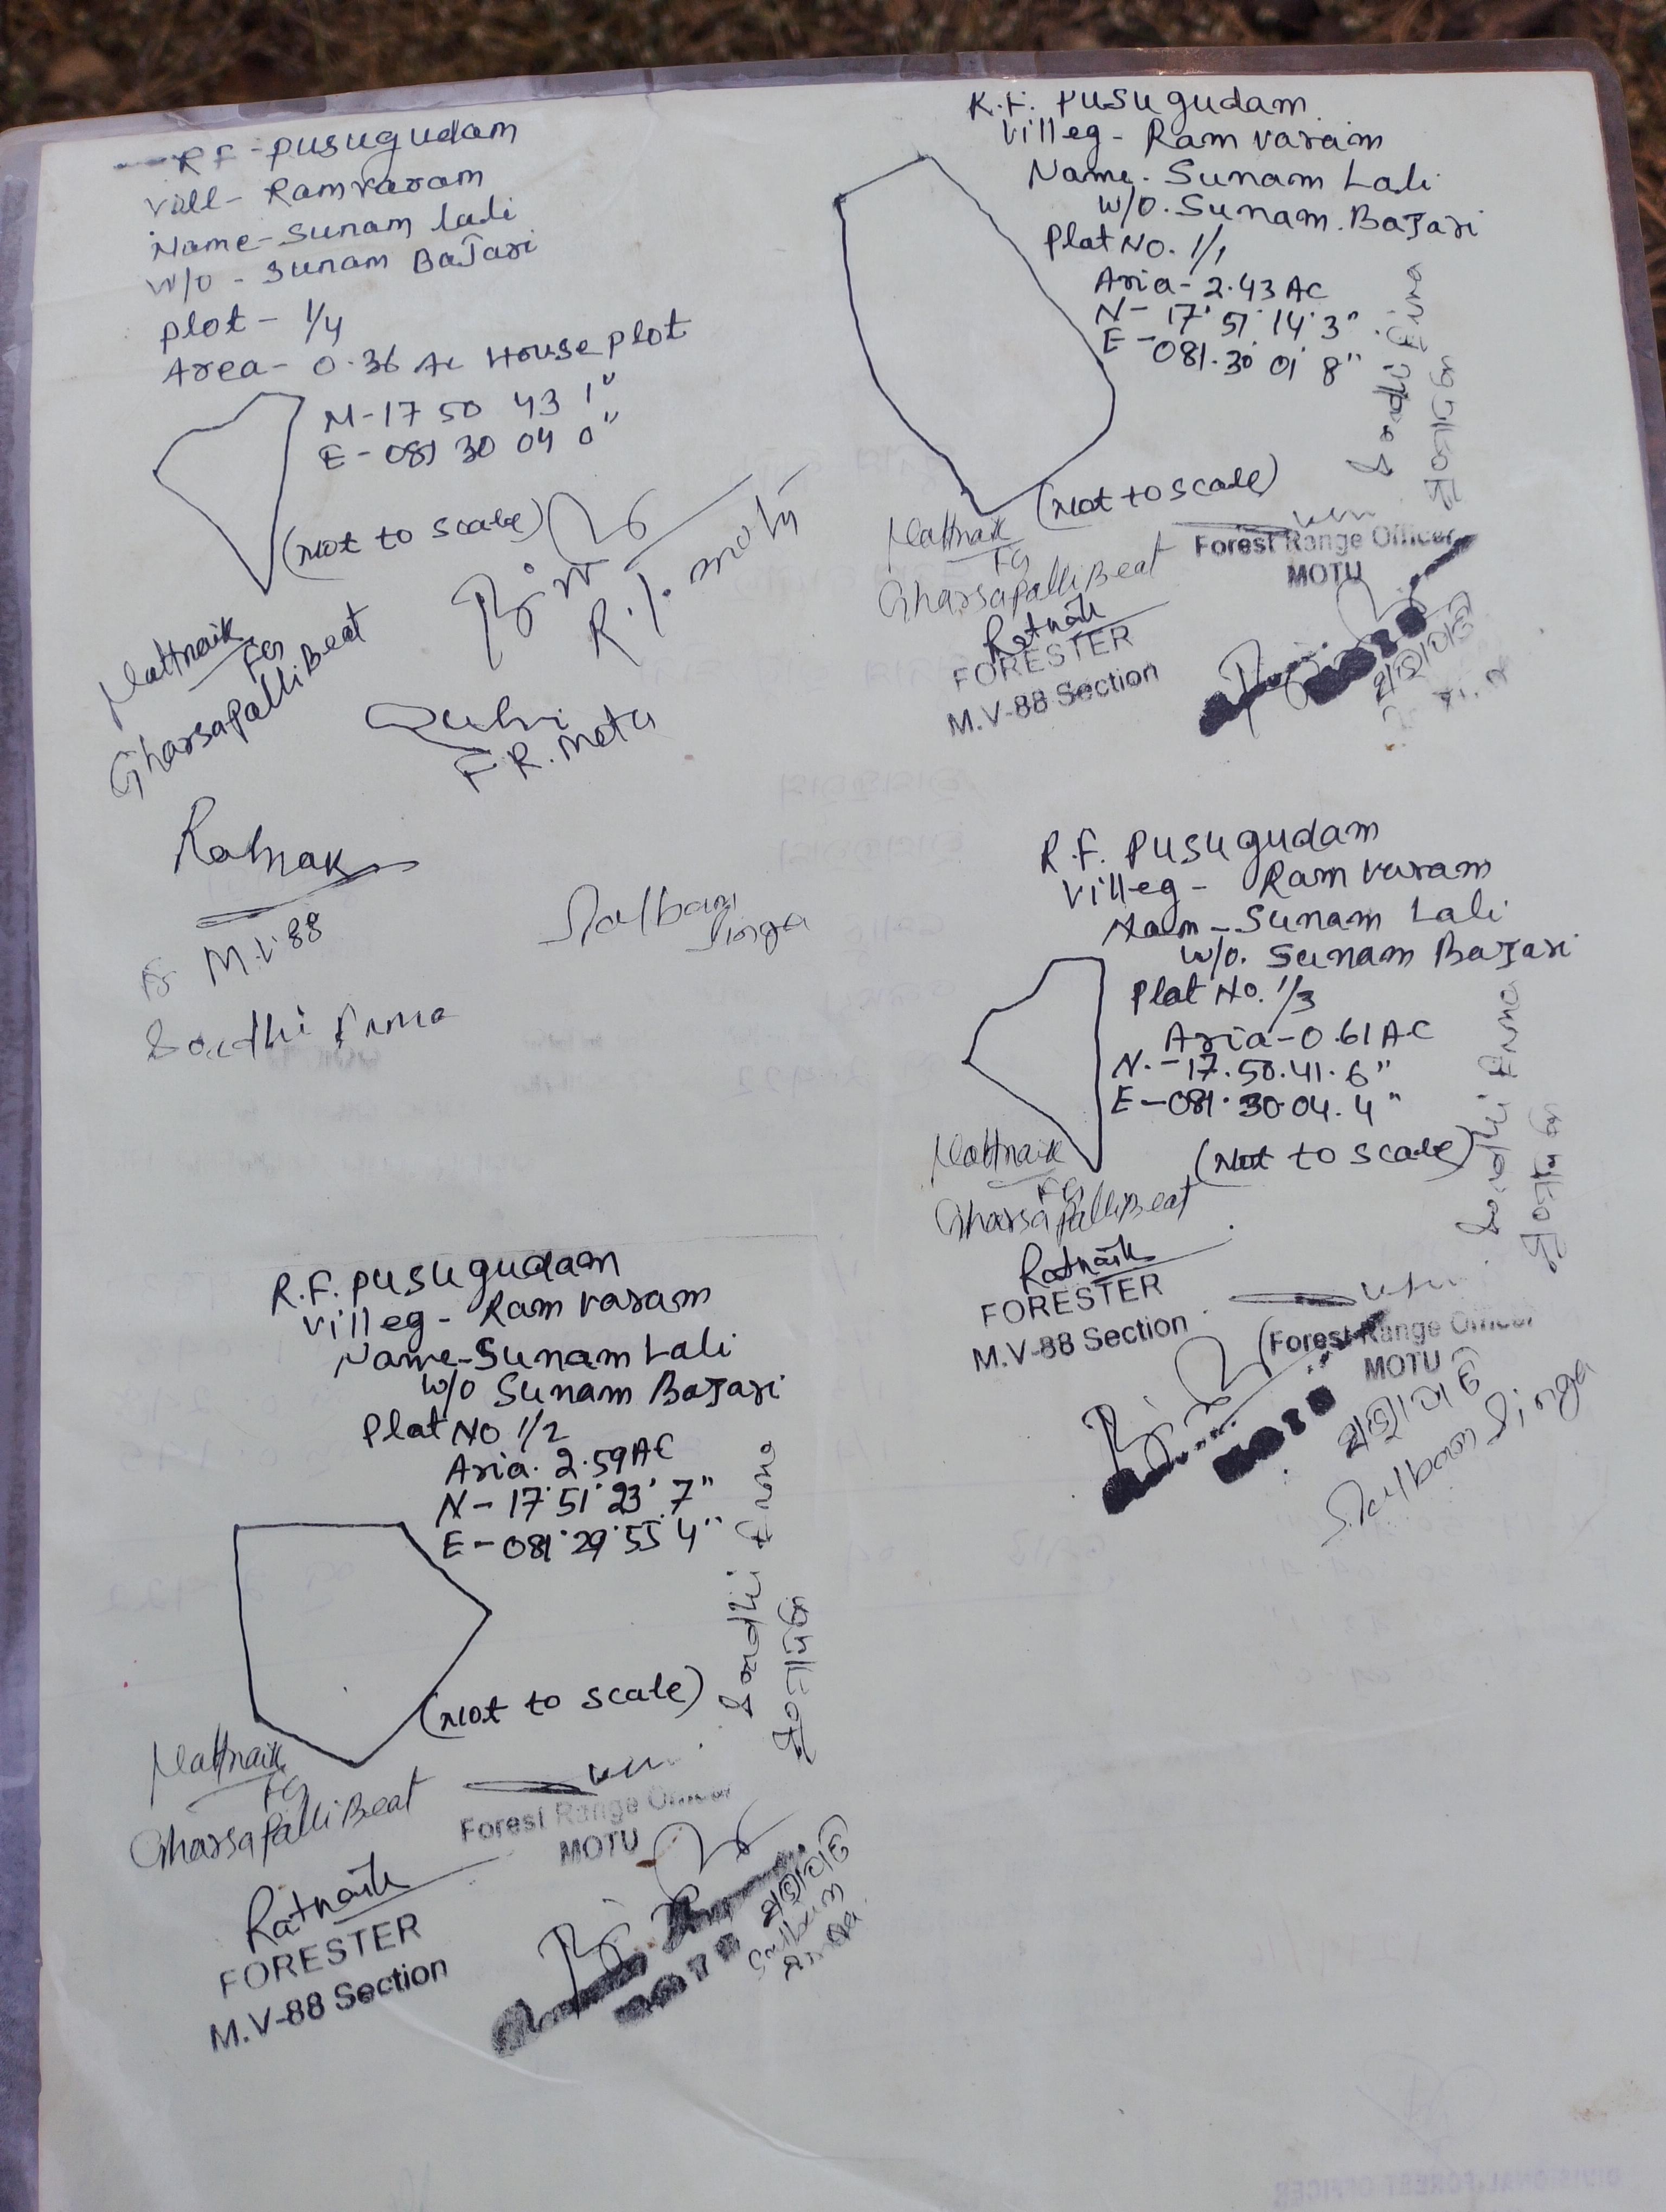 RF - Pusugudam
Vill - Ramvaram
Name - Sunam Lali
W/o - Sunam BaJari
Plot - 1/4
Area - 0.36 Ac House plot
N - 17 50 43 1"
E - 081 30 04 0"
(Not to scale)
R.I. Motu
Mattnaik
FG
Gharsapalli Beat
F.R. Motu
Ratnaik
M.V-88
Salbam
Singa
Sondhi Erma
R.F. Pusugudam
Villeg - Ram varam
Name - Sunam Lali
W/o. Sunam. BaJari
Plat No. 1/1
Aria - 2.43 AC
N - 17° 51' 14' 3"
E - 081. 30 01 8"
(Not to scale)
Sondhi Erma
Mattnaik
FG
Gharsapalli Beat
Forest Range Officer
MOTU
Ratnaik
FORESTER
M.V-88 Section
R.F. Pusugudam
Villeg - Ram varam
Nam - Sunam Lali
W/o. Sunam BaJari
Plat No. 1/3
Aria - 0.61 AC
N. - 17.50.41.6"
E - 081.30.04.4"
(Not to scale)
Sondhi Erma
Mattnaik
FG
Gharsapalli Beat
Ratnaik
FORESTER
M.V-88 Section
Forest Range Officer
MOTU
Salbam Singa
R.F. Pusugudam
Villeg - Ram varam
Name - Sunam Lali
W/o Sunam BaJari
Plat No 1/2
Aria. 2.59 AC
N - 17° 51' 23' 7"
E - 081° 29' 55' 4"
(Not to scale)
Sondhi Erma
Mattnaik
FG
Gharsapalli Beat
Forest Range Officer
MOTU
Ratnaik
FORESTER
M.V-88 Section